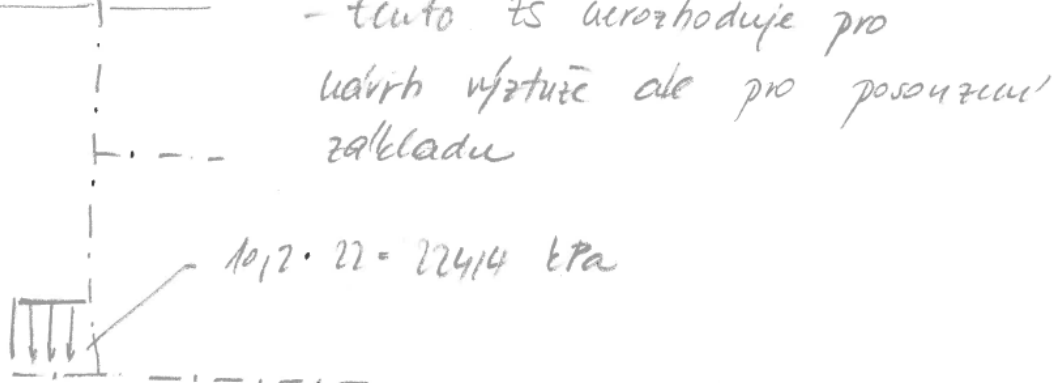 - tento ZS nerozhoduje pro
návrh výztuže ale pro posouzení
základu
10,2 · 22 = 224,4 kPa